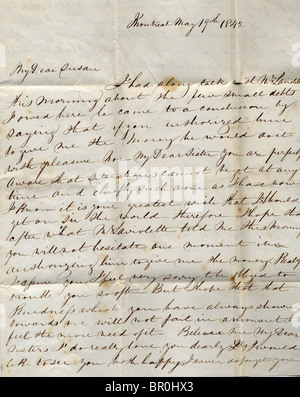 Montreal May 19th 1842
My Dear Susan
I had along talk with Mr
this morning about the few small debts
I owed here he came to a conclusion by
saying that if you authorized him
to give me the Money he would do it
with pleasure Now My Dear Sister you are perfectly
aware that situations can not be got at any
time and
I know it is your greatest wish that I should
get on in the world therefore I hope that
after what Mr told me this morning
you will not hesitate one moment in
authorizing him to give me the money
I feel very sorry to be obliged to
trouble you so often But I hope that that
Kindness which you have always shown
towards me will not fail in a moment I
feel the more need of it Believe me My Dear
Sisters I do really love you dearly I would
like to see you both happy I never
alamy
BR0HX3